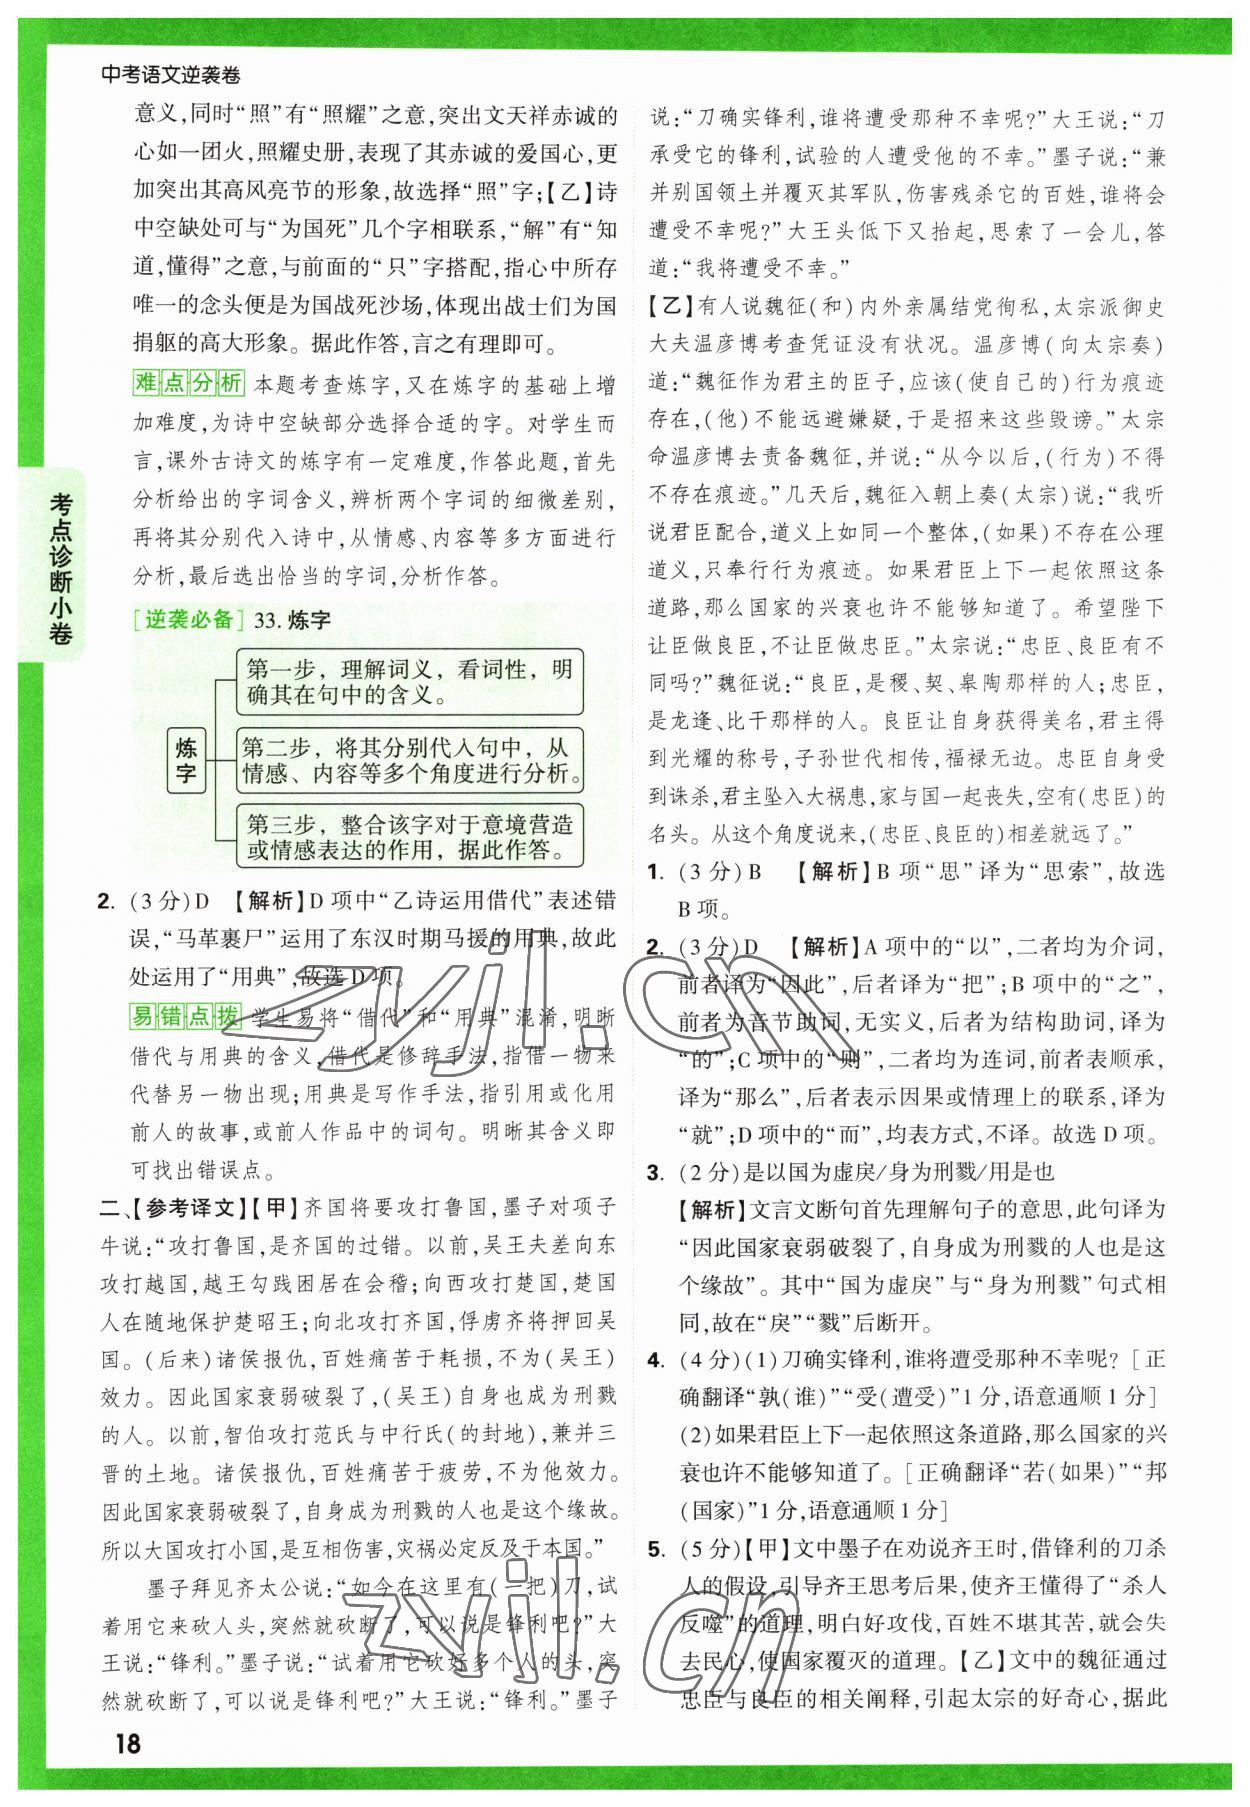 中考语文逆袭卷
意义,同时“照”有“照耀”之意,突出文天祥赤诚的
心如一团火,照耀史册,表现了其赤诚的爱国心,更
加突出其高风亮节的形象,故选择“照”字;【乙】诗
中空缺处可与“为国死”几个字相联系,“解”有“知
道,懂得”之意,与前面的“只”字搭配,指心中所存
唯一的念头便是为国战死沙场,体现出战士们为国
捐躯的高大形象。据此作答,言之有理即可。
难点分析 本题考查炼字,又在炼字的基础上增
加难度,为诗中空缺部分选择合适的字。对学生而
言,课外古诗文的炼字有一定难度,作答此题,首先
分析给出的字词含义,辨析两个字词的细微差别,
再将其分别代入诗中,从情感、内容等多方面进行
分析,最后选出恰当的字词,分析作答。
[逆袭必备] 33. 炼字
炼字
第一步，理解词义，看词性，明
确其在句中的含义。
第二步，将其分别代入句中，从
情感、内容等多个角度进行分析。
第三步，整合该字对于意境营造
或情感表达的作用，据此作答。
2. (3 分)D 【解析】D 项中“乙诗运用借代”表述错
误,“马革裹尸”运用了东汉时期马援的用典,故此
处运用了“用典”,故选 D 项。
易错点拨 学生易将“借代”和“用典”混淆,明晰
借代与用典的含义,借代是修辞手法,指借一物来
代替另一物出现;用典是写作手法,指引用或化用
前人的故事,或前人作品中的词句。明晰其含义即
可找出错误点。
二、【参考译文】【甲】齐国将要攻打鲁国,墨子对项子
牛说:“攻打鲁国,是齐国的过错。以前,吴王夫差向东
攻打越国,越王勾践困居在会稽;向西攻打楚国,楚国
人在随地保护楚昭王;向北攻打齐国,俘虏齐将押回吴
国。(后来)诸侯报仇,百姓痛苦于耗损,不为(吴王)
效力。因此国家衰弱破裂了,(吴王)自身也成为刑戮
的人。以前,智伯攻打范氏与中行氏(的封地),兼并三
晋的土地。诸侯报仇,百姓痛苦于疲劳,不为他效力。
因此国家衰弱破裂了,自身成为刑戮的人也是这个缘故。
所以大国攻打小国,是互相伤害,灾祸必定反及于本国。”
墨子拜见齐太公说:“如今在这里有(一把)刀,试
着用它来砍人头,突然就砍断了,可以说是锋利吧?”大
王说:“锋利。”墨子说:“试着用它砍好多个人的头,突
然就砍断了,可以说是锋利吧?”大王说:“锋利。”墨子
说:“刀确实锋利,谁将遭受那种不幸呢?”大王说:“刀
承受它的锋利,试验的人遭受他的不幸。”墨子说:“兼
并别国领土并覆灭其军队,伤害残杀它的百姓,谁将会
遭受不幸呢?”大王头低下又抬起,思索了一会儿,答
道:“我将遭受不幸。”
【乙】有人说魏征(和)内外亲属结党徇私,太宗派御史
大夫温彦博考查凭证没有状况。温彦博(向太宗奏)
道:“魏征作为君主的臣子,应该(使自己的)行为痕迹
存在,(他)不能远避嫌疑,于是招来这些毁谤。”太宗
命温彦博去责备魏征,并说:“从今以后,(行为)不得
不存在痕迹。”几天后,魏征入朝上奏(太宗)说:“我听
说君臣配合,道义上如同一个整体,(如果)不存在公理
道义,只奉行行为痕迹。如果君臣上下一起依照这条
道路,那么国家的兴衰也许不能够知道了。希望陛下
让臣做良臣,不让臣做忠臣。”太宗说:“忠臣、良臣有不
同吗?”魏征说:“良臣,是稷、契、皋陶那样的人;忠臣,
是龙逄、比干那样的人。良臣让自身获得美名,君主得
到光耀的称号,子孙世代相传,福禄无边。忠臣自身受
到诛杀,君主坠入大祸患,家与国一起丧失,空有(忠臣)的
名头。从这个角度说来,(忠臣、良臣的)相差就远了。”
1. (3 分)B 【解析】B 项“思”译为“思索”,故选
B 项。
2. (3 分)D 【解析】A 项中的“以”,二者均为介词,
前者译为“因此”,后者译为“把”;B 项中的“之”,
前者为音节助词,无实义,后者为结构助词,译为
“的”;C 项中的“则”,二者均为连词,前者表顺承,
译为“那么”,后者表示因果或情理上的联系,译为
“就”;D 项中的“而”,均表方式,不译。故选 D 项。
3. (2 分)是以国为虚戾/身为刑戮/用是也
【解析】文言文断句首先理解句子的意思,此句译为
“因此国家衰弱破裂了,自身成为刑戮的人也是这
个缘故”。其中“国为虚戾”与“身为刑戮”句式相
同,故在“戾”“戮”后断开。
4. (4 分)(1)刀确实锋利,谁将遭受那种不幸呢? [正
确翻译“孰(谁)”“受(遭受)”1 分,语意通顺 1 分]
(2)如果君臣上下一起依照这条道路,那么国家的兴
衰也许不能够知道了。[正确翻译“若(如果)”“邦
(国家)”1 分,语意通顺 1 分]
5. (5 分)【甲】文中墨子在劝说齐王时,借锋利的刀杀
人的假设,引导齐王思考后果,使齐王懂得了“杀人
反噬”的道理,明白好攻伐,百姓不堪其苦,就会失
去民心,使国家覆灭的道理。【乙】文中的魏征通过
忠臣与良臣的相关阐释,引起太宗的好奇心,据此
考点诊断小卷
18
zyjl.cn
zyjl.cn